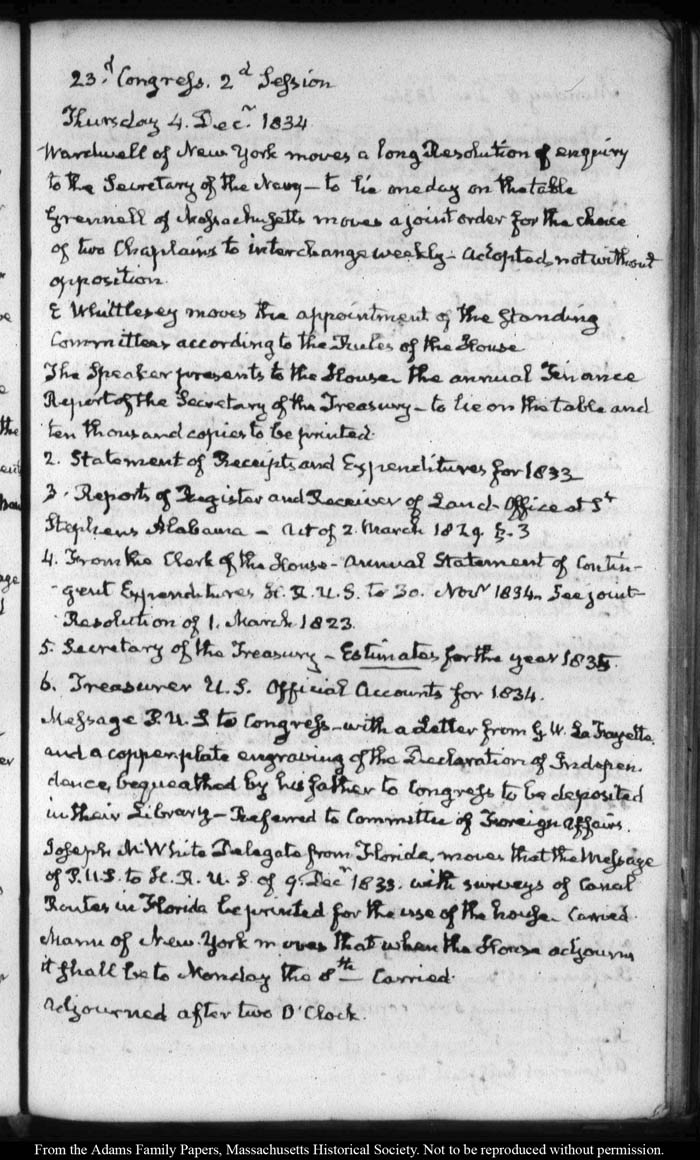 23.d Congress. 2d Session
Thursday 4. Decr. 1834
Wardwell of New York moves a long Resolution of enquiry
to the Secretary of the Navy – to lie one day on the table
Grennell of Massachusetts moves a joint order for the choice
of two Chaplains to interchange weekly – adopted, not without
opposition.
E Whittlesey moves the appointment of the Standing
Committees according to the Rules of the House
The Speaker presents to the House the annual Finance
Report of the Secretary of the Treasury – to lie on the table and
ten thousand copies to be printed.
2. Statement of Receipts and Expenditures for 1833
3. Reports of Register and Receiver of Land-Office at St
Stephens Alabama – Act of 2. March 1829. §. 3
4. From the Clerk of the House – Annual Statement of Contin-
-gent Expenditures H. R. U. S. to 30. Novr 1834. See joint
Resolution of 1. March 1823.
5. Secretary of the Treasury – Estimates for the year 1835.
6. Treasurer U. S. Official Accounts for 1834.
Message P. U. S to Congress – with a Letter from G. W. La Fayette
and a copperplate engraving of the Declaration of Indepen
dence, bequeathed by his father to Congress to be deposited
in their Library – Referred to Committee of Foreign Affairs.
Joseph M. White Delegate from Florida, moves that the Message
of P. U. S. to H. R. U. S. of 9. Decr 1833. with surveys of Canal
Routes in Florida be printed for the use of the house. Carried.
Mann of New York moves that when the House adjourns
it shall be to Monday the 8th – Carried.
Adjourned after two O'Clock.
From the Adams Family Papers, Massachusetts Historical Society. Not to be reproduced without permission.